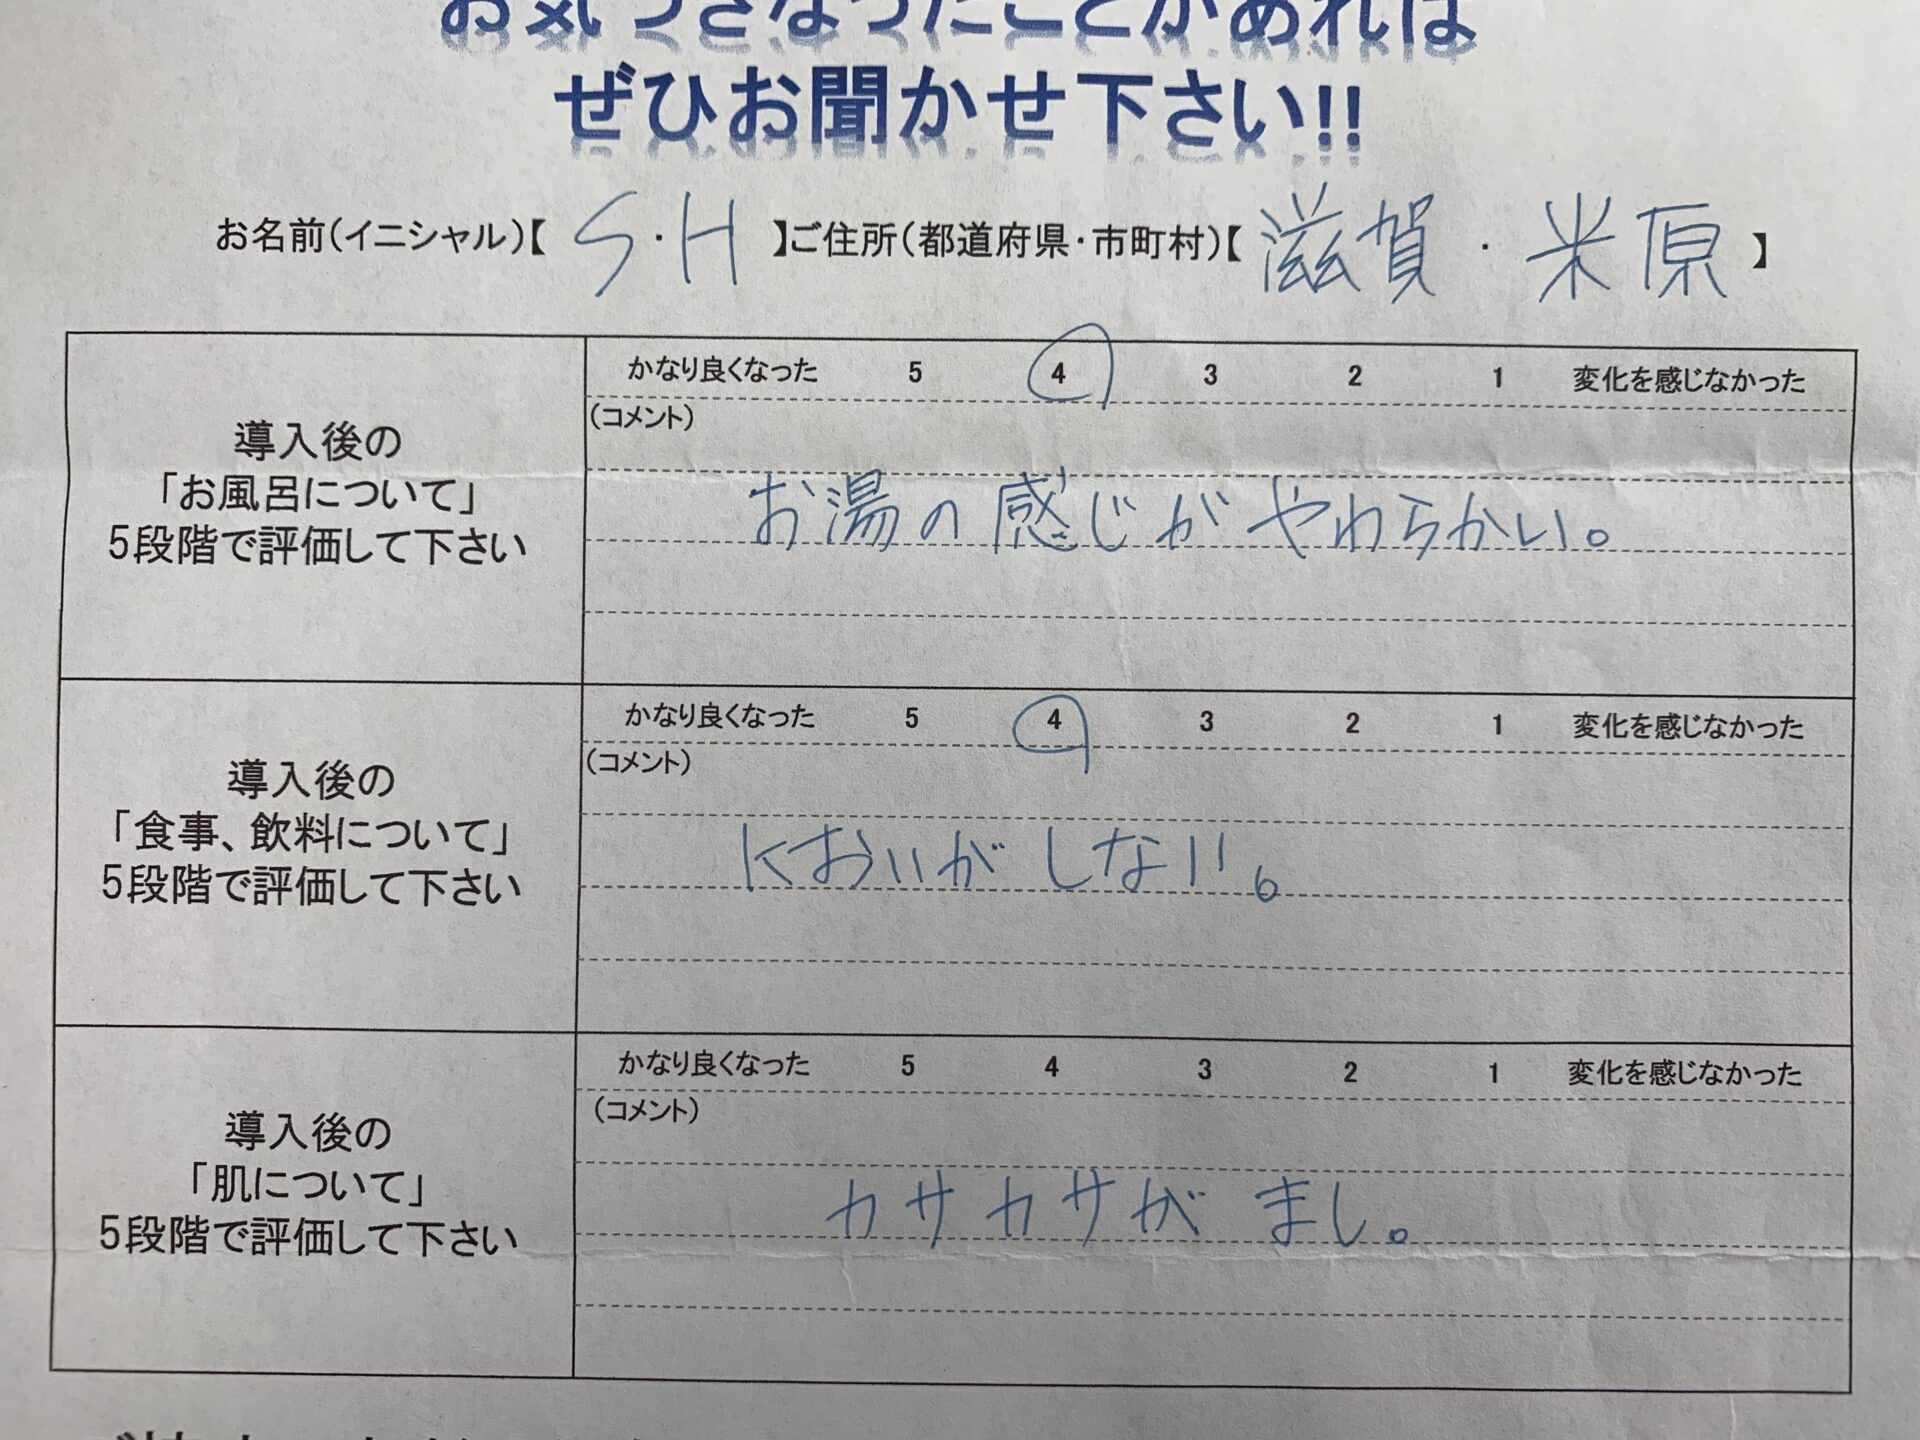 お気づきなったことがあれば
ぜひお聞かせ下さい!!
お名前(イニシャル)【 S・H 】ご住所(都道府県・市町村)【 滋賀 ・ 米原 】
導入後の
「お風呂について」
5段階で評価して下さい
かなり良くなった 5 4 3 2 1 変化を感じなかった
(コメント)
お湯の感じがやわらかい。
導入後の
「食事、飲料について」
5段階で評価して下さい
かなり良くなった 5 4 3 2 1 変化を感じなかった
(コメント)
においがしない。
導入後の
「肌について」
5段階で評価して下さい
かなり良くなった 5 4 3 2 1 変化を感じなかった
(コメント)
カサカサがまし。